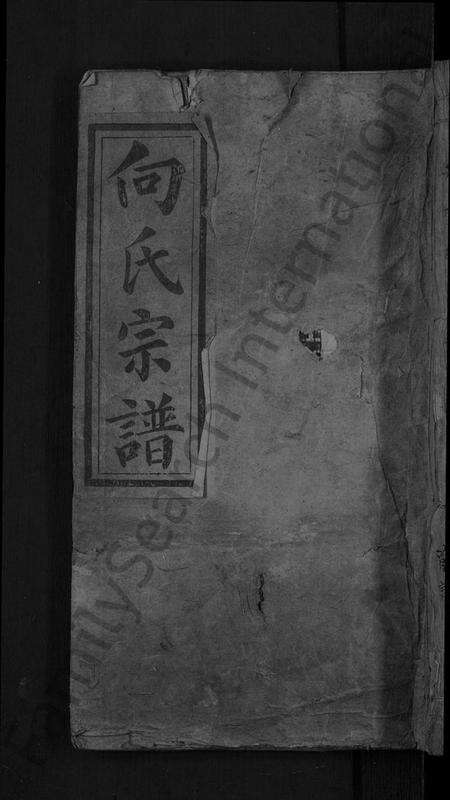 向氏宗譜
FamilySearch International